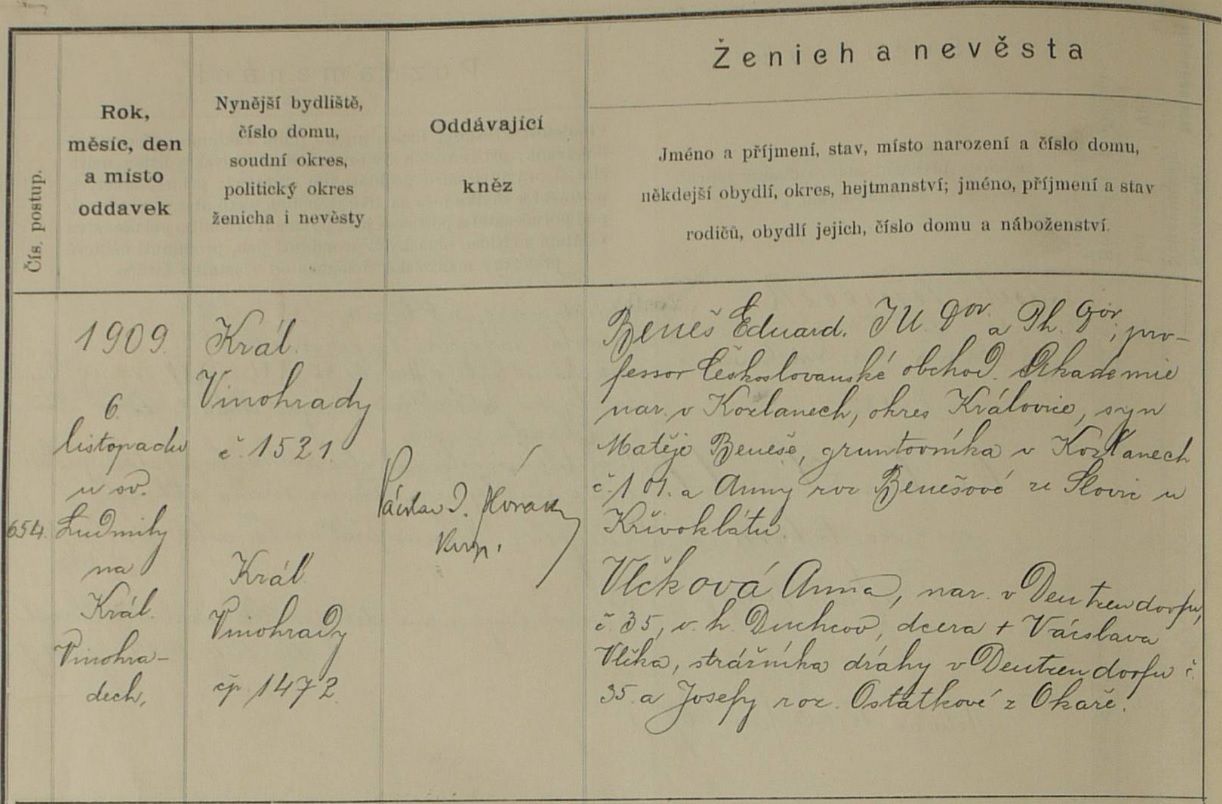 Ženich a nevěsta
Čís. postup.
Rok,
měsíc, den
a místo
oddavek
Nynější bydliště,
číslo domu,
soudní okres,
politický okres
ženicha i nevěsty
Oddávající
kněz
Jméno a příjmení, stav, místo narození a číslo domu,
někdejší obydlí, okres, hejtmanství; jméno, příjmení a stav
rodičů, obydlí jejich, číslo domu a náboženství.
654.
1909.
6.
listopadu
u sv.
Ludmily
na
Král.
Vinohra-
dech,
Král.
Vinohrady
č. 1521.
Král.
Vinohrady
čp. 1472.
Václav
Beneš Eduard. JU. Dor. a Ph. Dor, pro-
fessor Českoslovanské obchod. Akademie
nar. v Kozlanech, okres Královice, syn
Matěje Beneše, gruntovníka v Kozlanech
č. 101. a Anny roz Benešové ze Slovic u
Křivoklátu.
Vlčková Anna, nar. v Deutzendorfu,
č. 35, o. h. Duchcov, dcera + Václava
Vlčka, strážníka dráhy v Deutzendorfu č.
35. a Josefy roz. Ostatkové z Okoře.